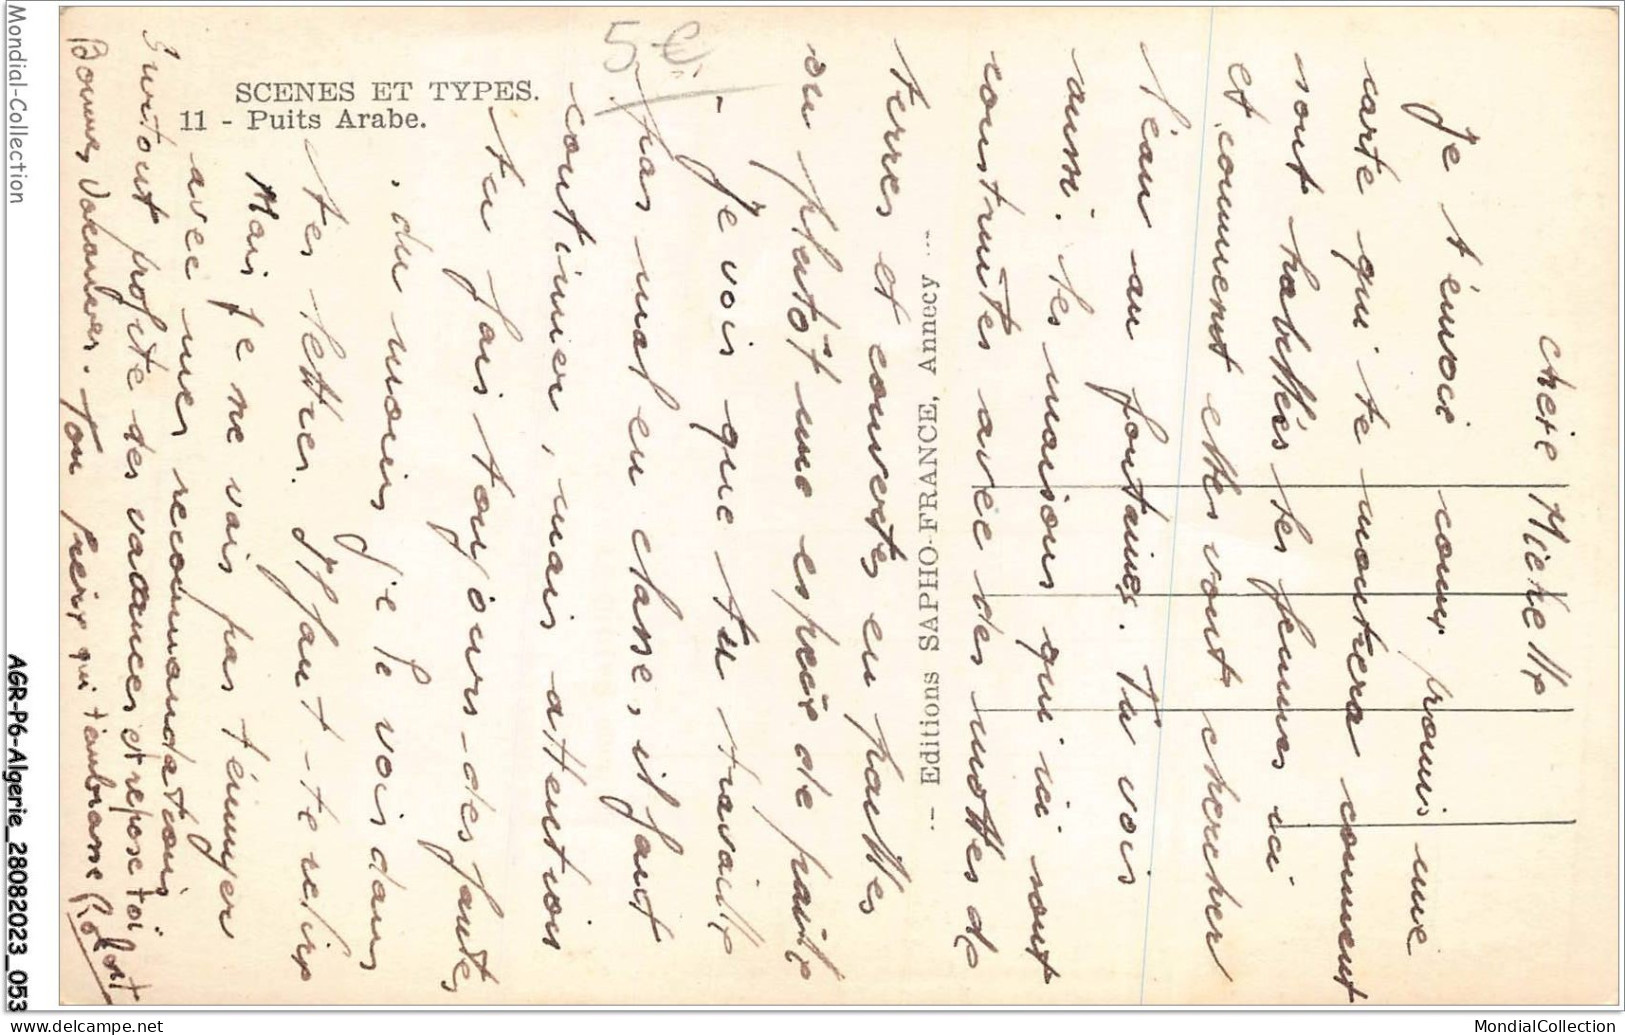 Mondial-Collection
AGR-P6-Algerie_28082023_053
SCENES ET TYPES.
11 - Puits Arabe.
5 €
-- Editions SAPHO-FRANCE, Annecy --
chère Michelle
Je t'envoie comme promis une
carte qui te montrera comment
sont habillées les femmes ici
et comment elles vont chercher
l'eau au fontaines. Tu vois
aussi les maisons qui ici sont
construites avec des mottes de
terres et couvertes en pailles
ou plutôt une espèce de paille
- Je vois que tu travaille
pas mal en classe, il faut
continuer, mais attention
tu fais toujours des fautes
du moins je le vois dans
tes lettres. Il faut te relire
Mais je ne vais pas t'ennuyer
avec mes recommandations
Surtout profite des vacances et repose toi
Bonnes Vacances. Ton frère qui t'embrasse
MondialCollection
www.delcampe.net